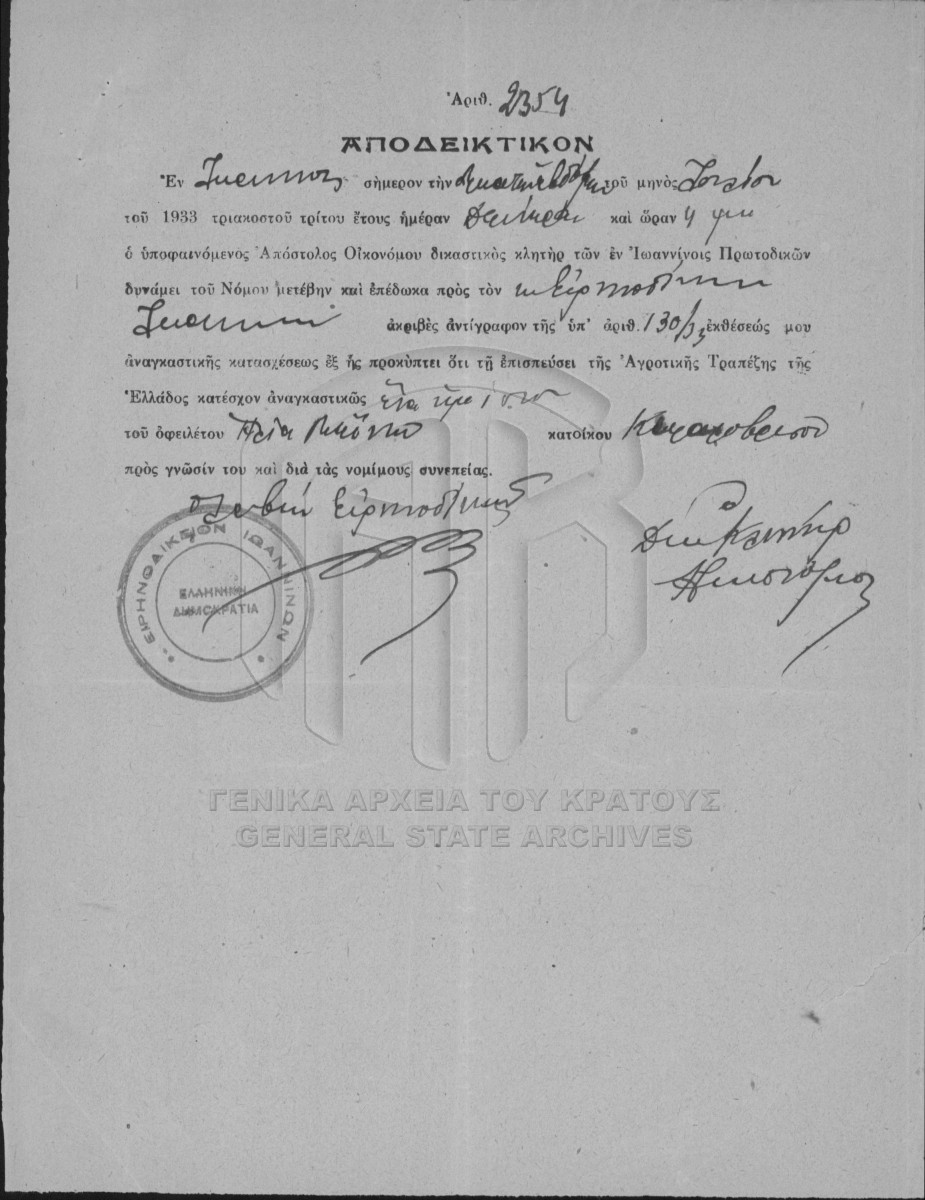 Ἀριθ. 2354
ἈΠΟΔΕΙΚΤΙΚΟΝ
Ἐν σήμερον τὴν τοῦ μηνὸς
τοῦ 1933 τριακοστοῦ τρίτου ἔτους ἡμέραν Δευτέραν καὶ ὥραν 4 μμ
ὁ ὑποφαινόμενος Ἀπόστολος Οἰκονόμου δικαστικὸς κλητὴρ τῶν ἐν Ἰωαννίνοις Πρωτοδικῶν
δυνάμει τοῦ Νόμου μετέβην καὶ ἐπέδωκα πρὸς τὸν κ Εἰρηνοδίκην
ἀκριβὲς ἀντίγραφον τῆς ὑπ' ἀριθ. 130/33 ἐκθέσεώς μου
ἀναγκαστικῆς κατασχέσεως ἐξ ἧς προκύπτει ὅτι τῇ ἐπισπεύσει τῆς Ἀγροτικῆς Τραπέζης τῆς
Ἑλλάδος κατέσχον ἀναγκαστικῶς
τοῦ ὀφειλέτου Ἠλία κατοίκου
πρὸς γνῶσίν του καὶ διὰ τὰς νομίμους συνεπείας.
Εἰρηνοδίκης
Κλητὴρ
ΕΙΡΗΝΟΔΙΚΕΙΟΝ ΙΩΑΝΝΙΝΩΝ
ΕΛΛΗΝΙΚΗ
ΔΗΜΟΚΡΑΤΙΑ
ΓΕΝΙΚΑ ΑΡΧΕΙΑ ΤΟΥ ΚΡΑΤΟΥΣ
GENERAL STATE ARCHIVES